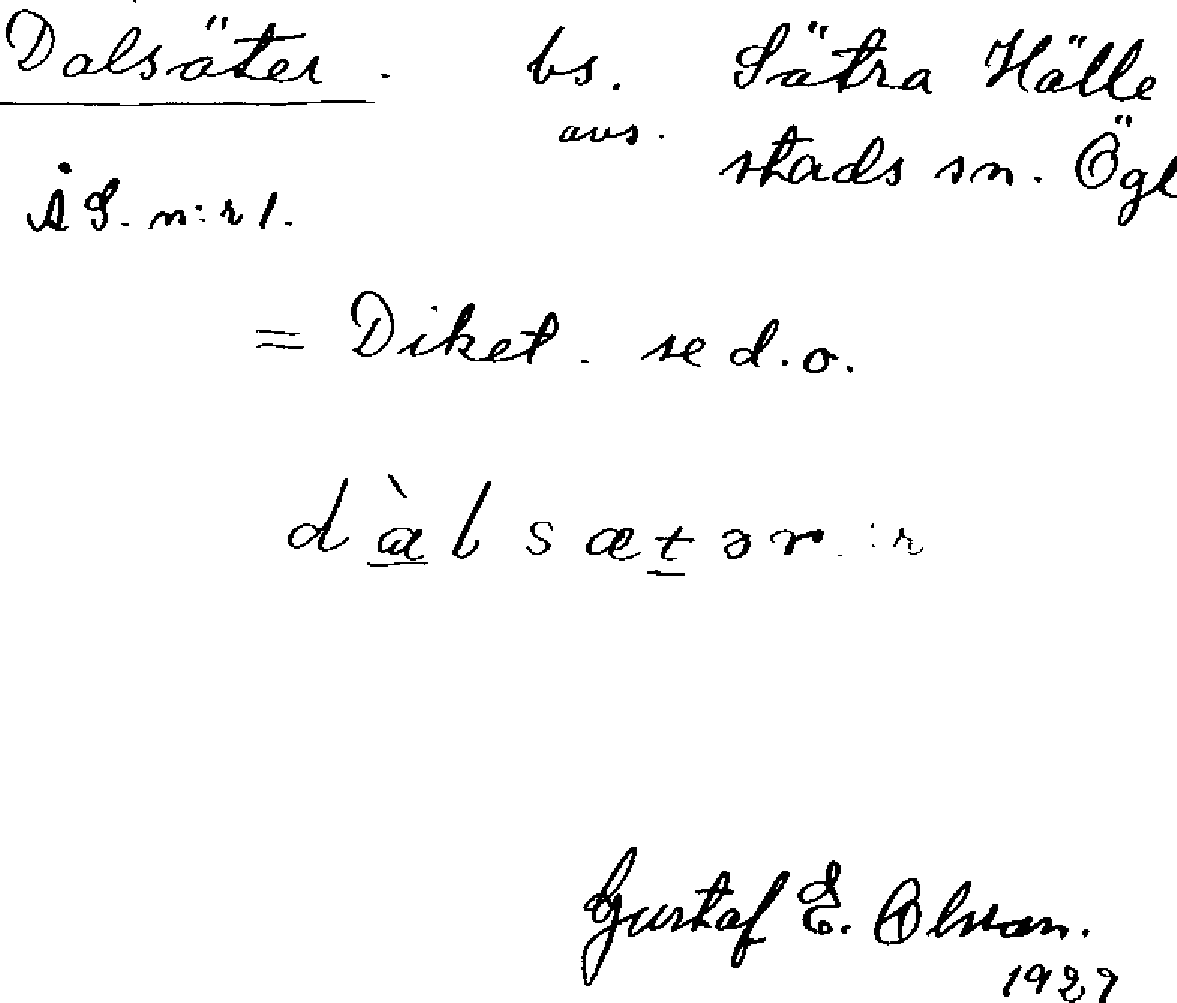 Dalsäter. bs. Sätra Hälle
avs. stads sn. Ögl
ÅS. n:r 1.
= Diket. se d.o.
dàlsætər :r
Gustaf E. Olsson.
1929